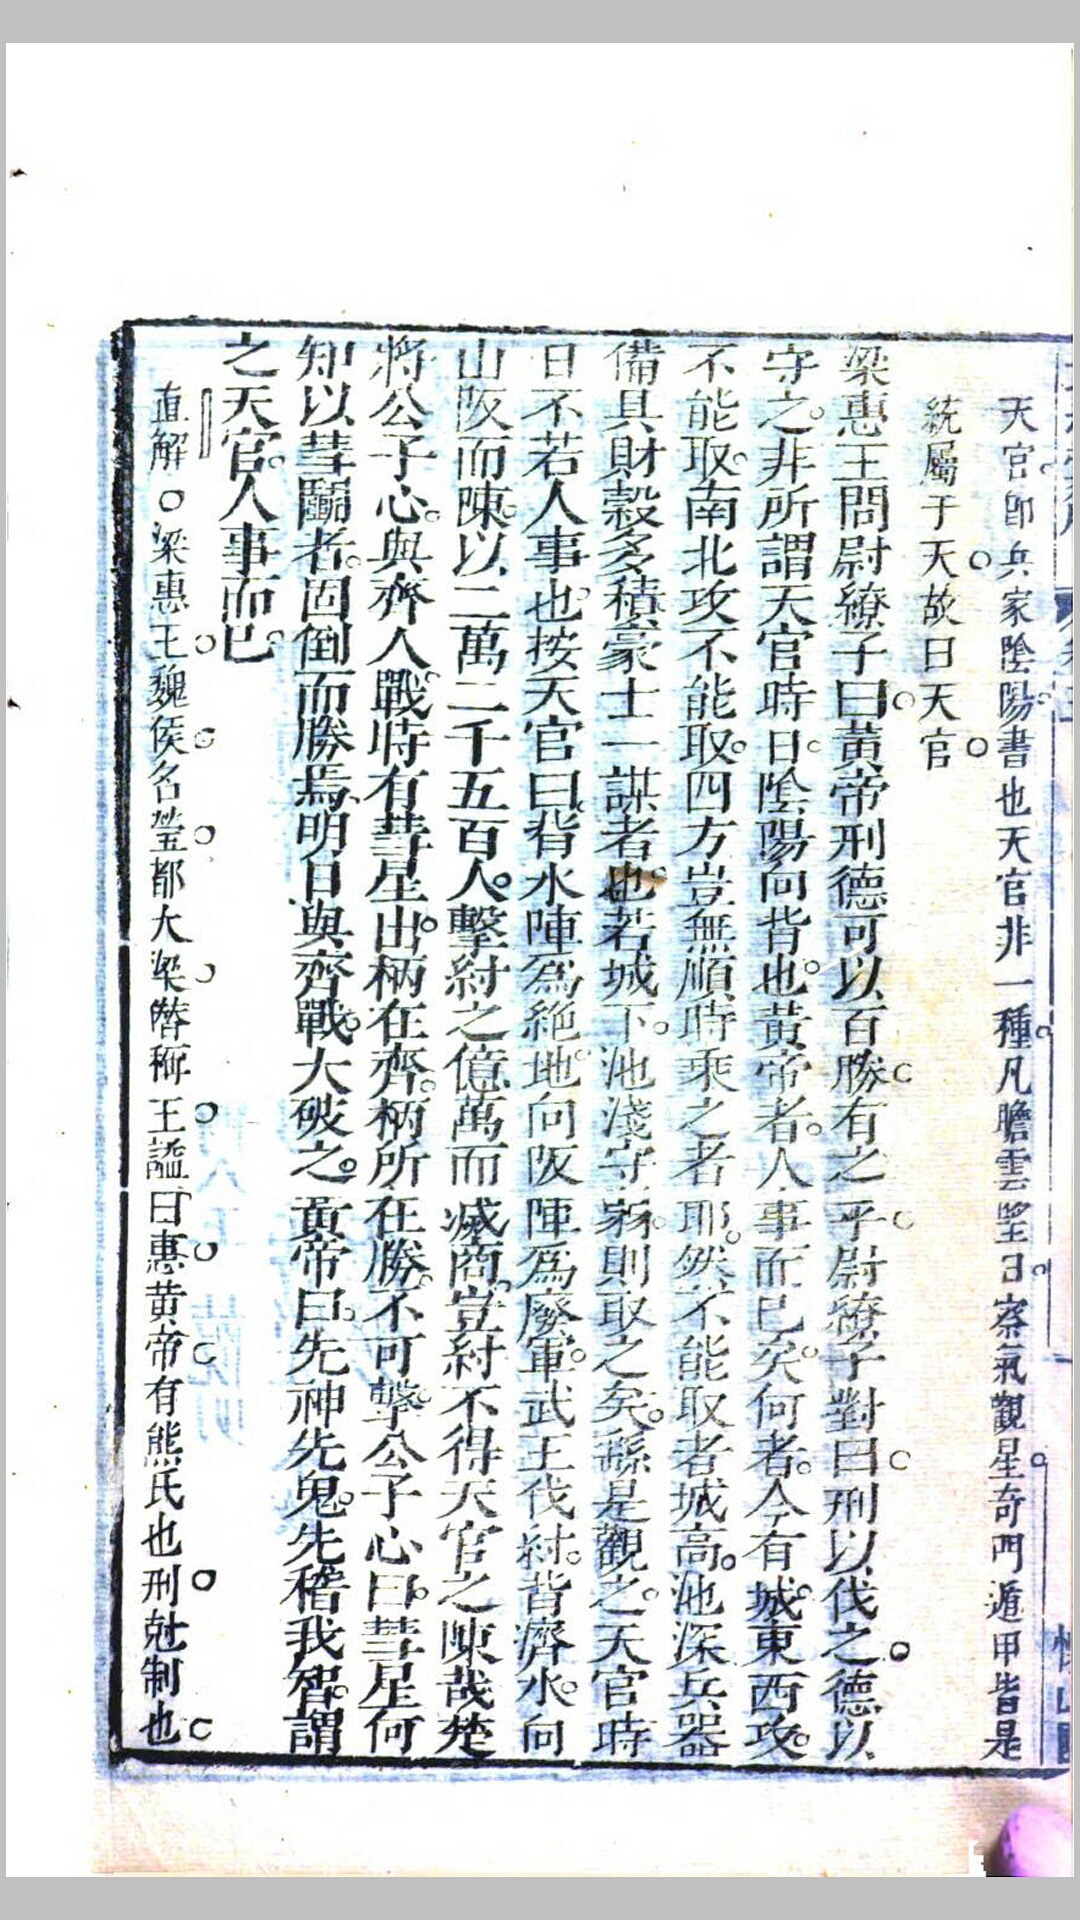 天官卽兵家陰陽書也天官非一種凡瞻雲望日察氣觀星奇門遁甲皆是
統屬于天故曰天官
梁惠王問尉繚子曰黃帝刑德可以百勝有之乎尉繚子對曰刑以伐之德以
守之非所謂天官時日陰陽向背也黃帝者人事而已矣何者今有城東西攻
不能取南北攻不能取四方豈無順時乘之者耶然不能取者城高池深兵器
備具財穀多積豪士一謀者也若城下池淺守弱則取之矣繇是觀之天官時
日不若人事也按天官曰背水陣爲絶地向阪陣爲廢軍武王伐紂背濟水向
山阪而陳以二萬二千五百人擊紂之億萬而滅商豈紂不得天官之陳哉楚
將公子心與齊人戰時有彗星出柄在齊柄所在勝不可擊公子心曰彗星何
知以彗鬭者固倒而勝焉明日與齊戰大破之黃帝曰先神先鬼先稽我智謂
之天官人事而已
直解○梁惠王魏侯名瑩都大梁僭稱王諡曰惠黄帝有熊氏也刑尅制也